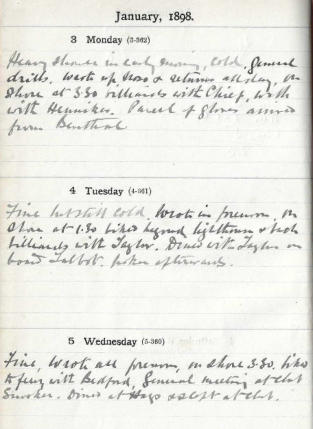 January, 1898.
3 Monday (3-362)
Heavy shower in early morning, cold, general
drills. Wrote up and returns all day, on
shore at 3.30 billiards with Chief, with
with Henniker. Parcel of gloves arrived
from
4 Tuesday (4-361)
Fine but still cold. Wrote in forenoon, on
shore at 1.30 biked beyond lighthouse & back
billiards with Taylor. Dined with Taylor on
board Talbot. poker afterwards.
5 Wednesday (5-360)
Fine, Wrote all forenoon, on shore 3.30. biked
to ferry with Bedford, General meeting at Club
Smoker. Dined at & slept at Club.